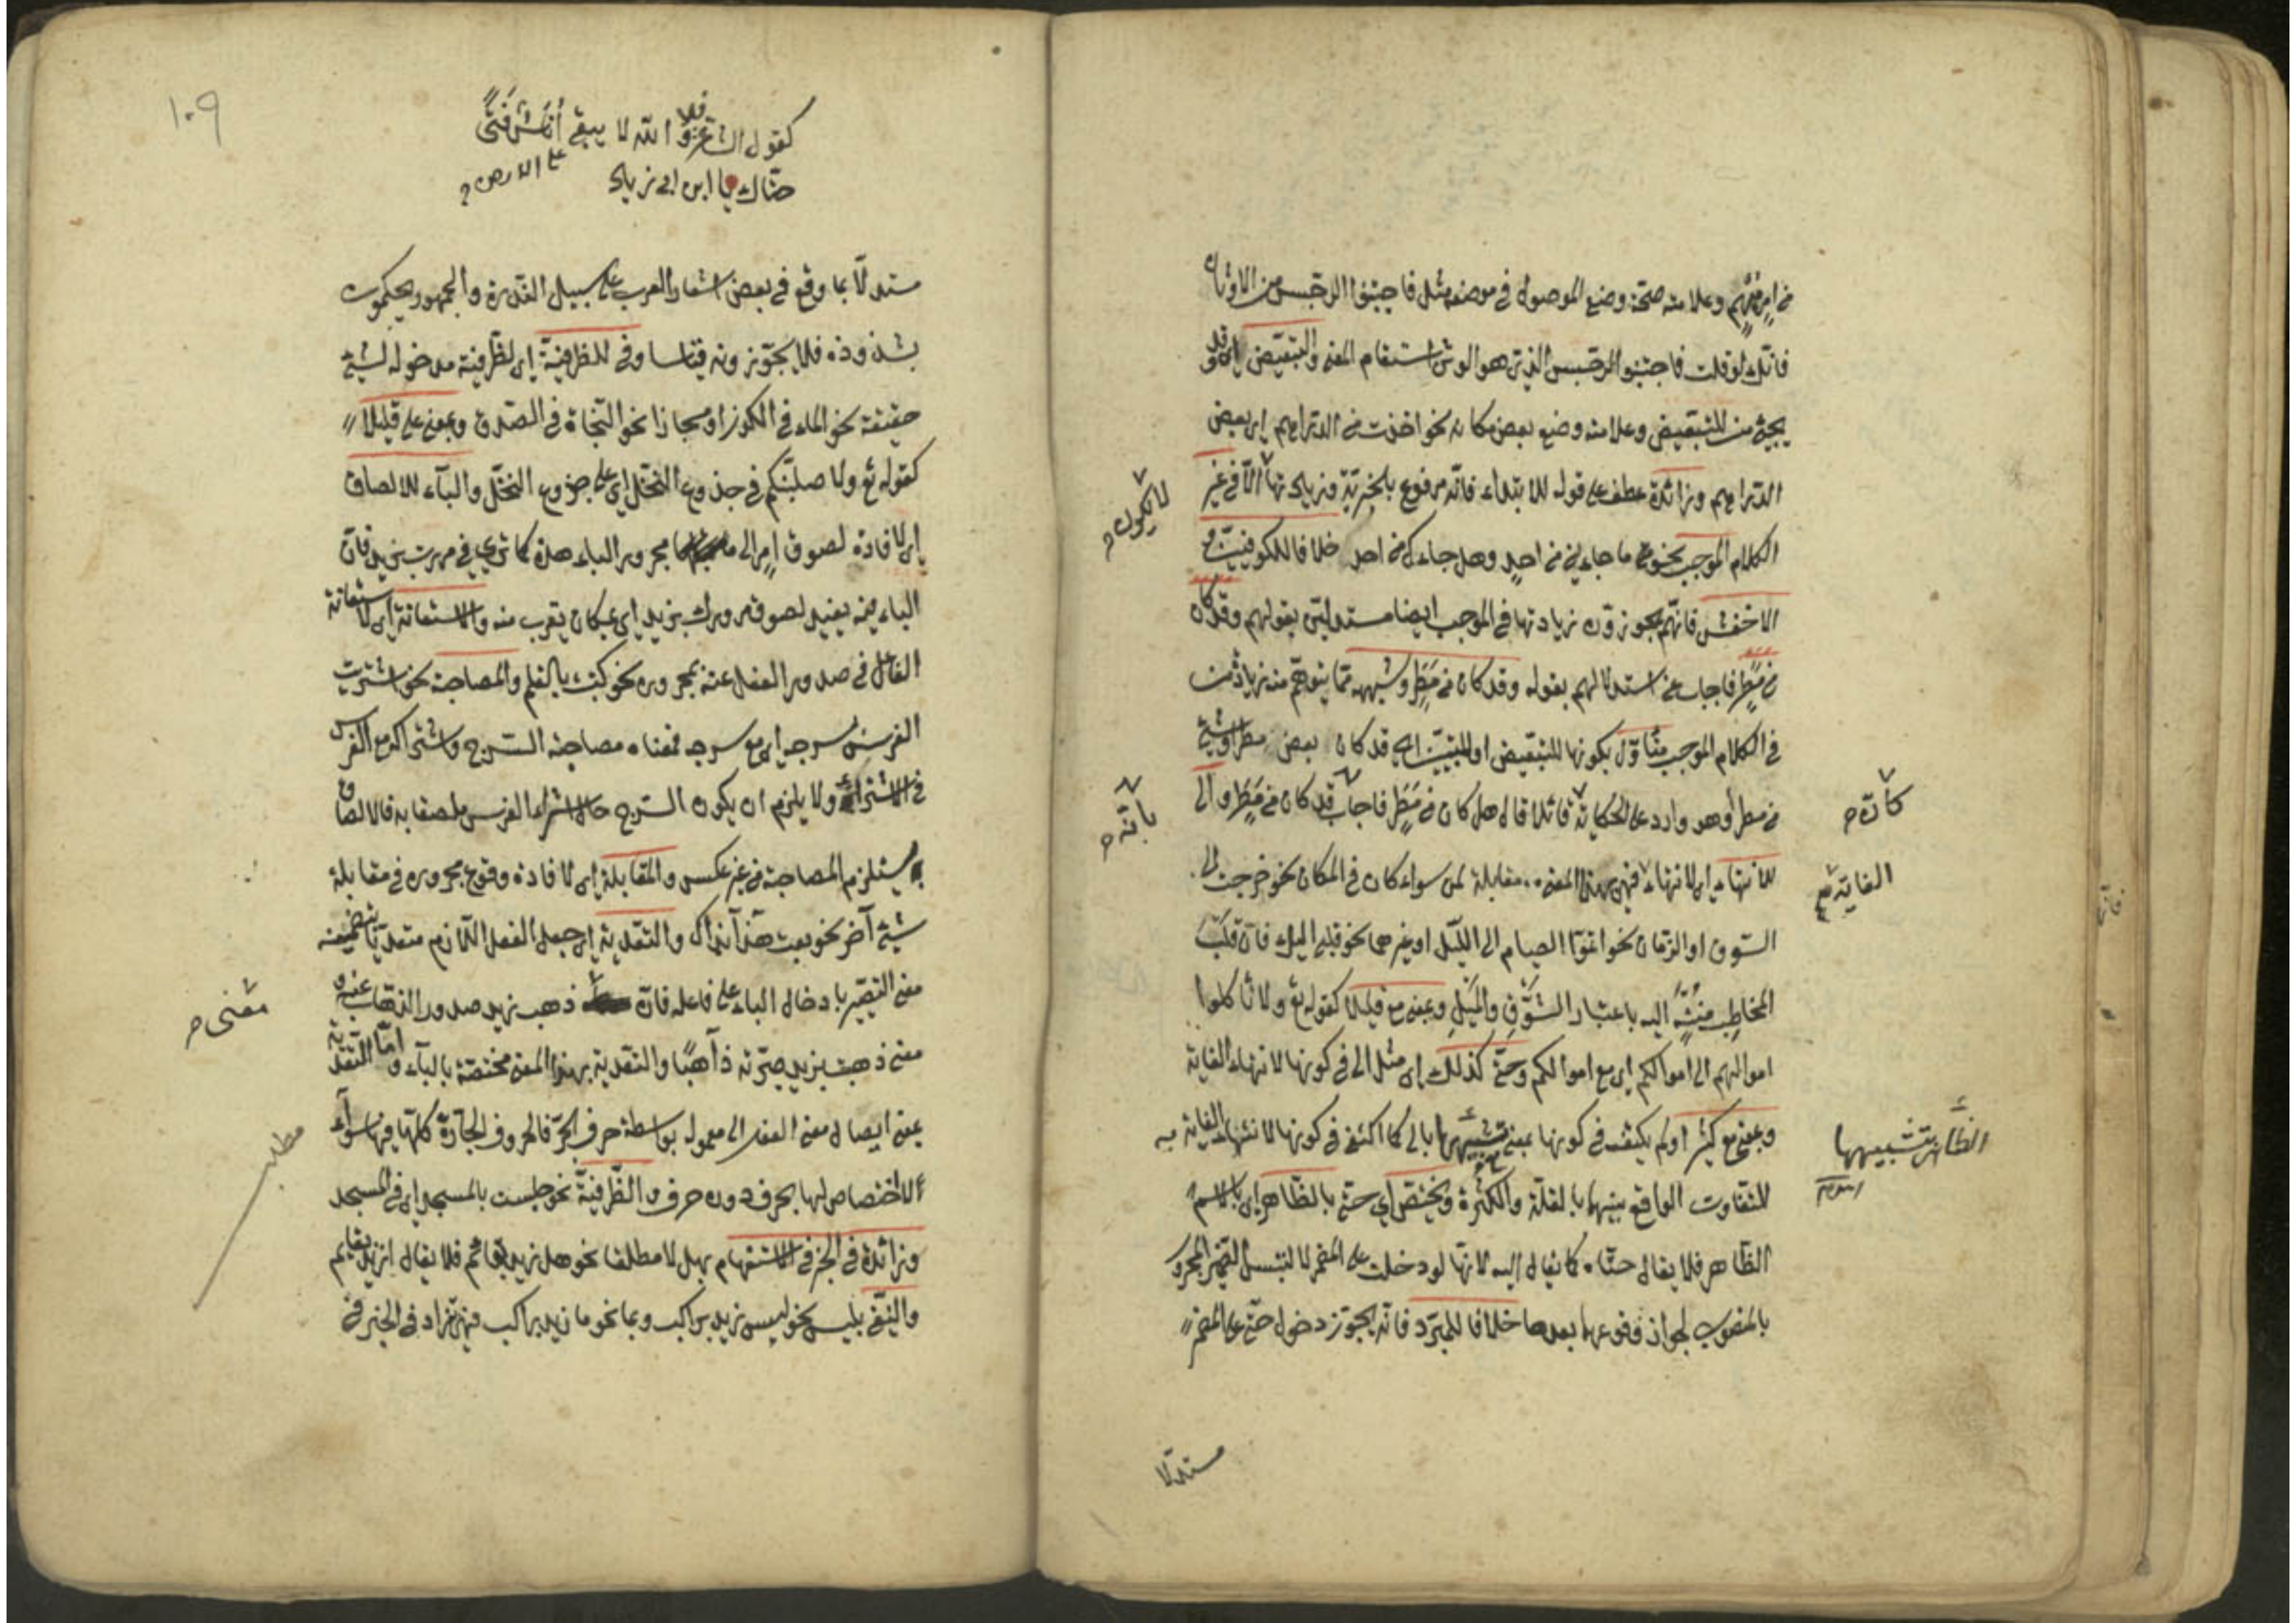 من امر مبهم وعلامته صحة وضع الموصول في موضعه مثل فاجتنبوا الرجس من الاوثان
فانك لو قلت فاجتنبوا الرجس الذي هو الوثن استقام المعنى والتبعيض اى وقد
يجئ من للتبعيض وعلامته وضع بعض مكانه نحو اخذت من الدراهم اى بعض
الدراهم وزائدة عطف على قوله للابتداء فانه مرفوع بالخبرية وزيادتها الا في غير
لا يكون
الكلام الموجب نحو ما جاءنى من احد وهل جاءك من احد خلافا للكوفيين و
الاخفش فانهم يجوزون زيادتها في الموجب ايضا مستدلين بقولهم وقد كان
من مطر فاجاب عن استدلالهم بقوله وقد كان من مطر وشبهه مما يتوهم منه زيادة من
في الكلام الموجب متأول بكونها للتبعيض او للتبيين اى قد كان بعض مطر او شئ
من مطر أو هو وارد على الحكاية قائلا قال هل كان من مطر فاجاب قد كان من مطر والى
كأنه
بانه
للانتهاء اى لانتهاء فهى بهذا المعنى مقابلة لمن سواء كان في المكان نحو خرجت الى
الغاية
السوق او الزمان نحو اتموا الصيام الى الليل او غيرهما نحو قلبى اليك فان قلب
المخاطب منته اليه باعتبار الشوق والميل وبمعنى مع قليلا كقوله تع ولا تأكلوا
اموالهم الى اموالكم اى مع اموالكم وحتى كذلك اى مثل الى في كونها لانتهاء الغاية
وبمعنى مع كثيرا ولم يكتف في كونها بمعنى تشبيهها بالى كما اكتفى في كونها لانتهاء الغاية
الظاهر تشبيهها
للتفاوت الواقع بينهما بالقلة والكثرة ويختص اى حتى بالظاهر اى بالاسم
الظاهر فلا يقال حتاه كما يقال اليه لانها لو دخلت على المضمر لالتبس الضمير المجرور
بالمنصوب لجواز وقوعها بعدها خلافا للمبرد فانه يجوز دخول حتى على المضمر
مستدلا
١٠٩
كقول الشاعر فلا والله لا يبقى أناس فتى
حتاك يا ابن ابى زياد على الارض
مستدلا بما وقع في بعض اشعار العرب على سبيل الندرة والجمهور يحكمون
بشذوذه فلا يجوزونه قياسا وفى للظرفية اى لظرفية مدخوله لشئ
حقيقة نحو الماء في الكوز او مجازا نحو النجاة في الصدق وبمعنى على قليلا
كقوله تع ولاصلبنكم في جذوع النخل اى على جزوع النخل والباء للالصاق
اى لافادة لصوق امر الى مجرور الباء هذه كما ترى في مررت بزيد فان
الباء فيه يفيد لصوق مرورك بزيد اى بمكان يقرب منه والاستعانة اى لاستعانة
الفاعل في صدور الفعل عنه بمجروره نحو كتبت بالقلم والمصاحبة نحو اشتريت
الفرس بسرجه اى مع سرجه فمعناه مصاحبة السرج واشتراكه مع الفرس
في الاشتراء ولا يلزم ان يكون السرج حال اشتراء الفرس ملصقا به فالالصاق
يستلزم المصاحبة من غير عكس والمقابلة اى لافادة وقوع مجروره في مقابلة
شئ آخر نحو بعت هذا بذاك والتعدية اى جعل الفعل اللازم متعديا بتضمينه
معنى التصيير بادخال الباء على فاعله فان ذهب زيد صدور الذهاب عنه و
معنى
معنى ذهبت بزيد صيرته ذاهبا والتعدية بهذا المعنى مختصة بالباء واما التعدية
بمعنى ايصال معنى الفعل الى معموله بواسطة حرف الجر فالحروف الجارة كلها فيها سواء
مطلب
لا اختصاص لها بحرف دون حرف والظرفية نحو جلست بالمسجد اى في المسجد
وزائدة في الخبر في الاستفهام بهل لا مطلقا نحو هل زيد بقائم فلا يقال ازيد بقايم
والنفى بليس نحو ليس زيد براكب وبما نحو ما زيد براكب فهى تزاد في الخبر في